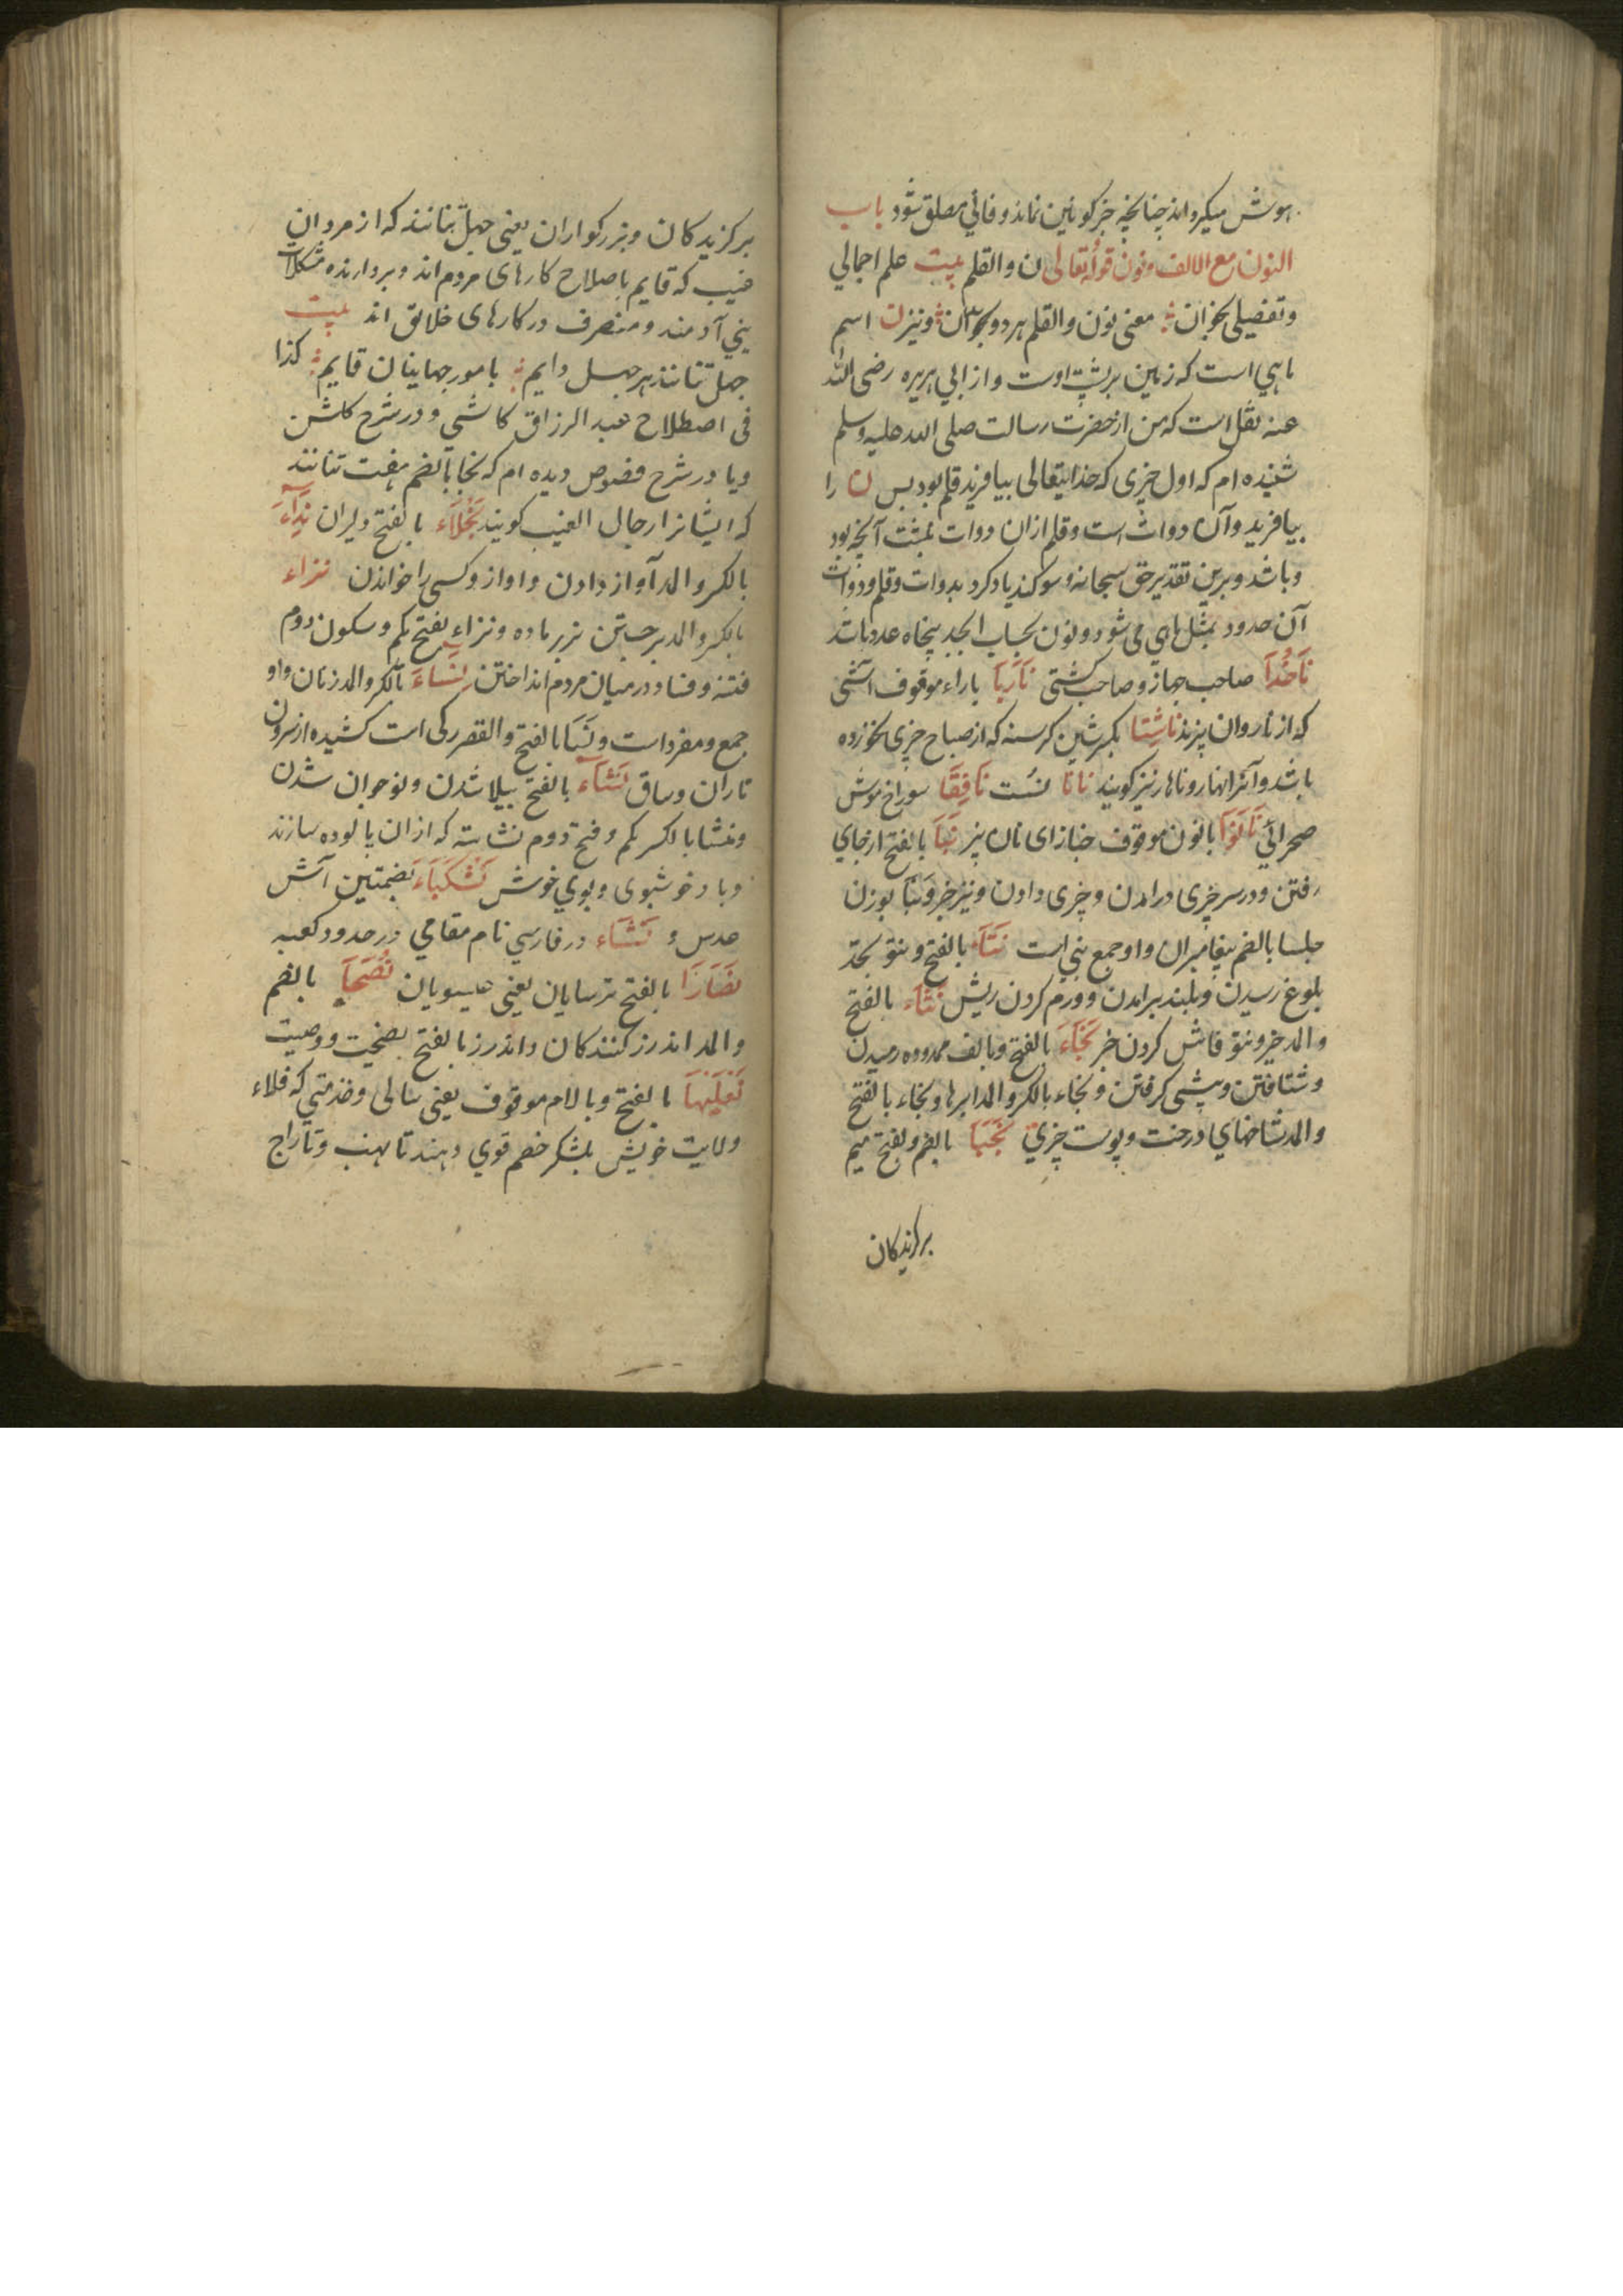 هوش میکرداند چنانچه خبر کونین نماند و فانی مطلق شود باب
النون مع الالف و نون قوله تعالی ن والقلم بیت علم اجمالی
و تفصیلی بخوان معنی نون والقلم هر دو بخوان و نیز ن اسم
ماهی است که زمین بر پشت اوست و از ابی هریره رضی الله
عنه نقل است که من از حضرت رسالت صلی الله علیه وسلم
شنیده ام که اول چیزی که خدایتعالی بیافرید قلم بود بس ن را
بیافرید و آن دوات است و قلم ازان دوات بنبشت آنچه بود
و باشد و برین تقدیر حق سبحانه و سوکند یاد کرد بدوات و قلم و دوات
آن حدود بمثل ماهی می شود و نون بحساب ابجد پنجاه عدد باشد
ناخدا صاحب جهاز و صاحب کشتی ناربا باراء موقوف آشی
که از ناروان پزند ناشتا بکسر شین کرسنه که از صباح چیزی نخورده
باشد و آنرا نهار و ناهار نیز کویند نانا نافقا سوراخ موش
صحرائی نانوا بانون موقوف خبازای نان پز نبا بالفتح از جای
رفتن و در سر چیزی درامدن و چیزی دادن و نیز خبر و نبا بوزن
جلسا بالضم پیغامبران و او جمع نبی است نتاء بالفتح و نتو بحد
بلوغ رسیدن و بلند برامدن و ورم کردن ریش نثاء بالفتح
والمد خیر و نثو فاش کردن خبر نجاء بالفتح و بالف ممدوده رمیدن
و شتافتن و پیشی کرفتن و نجاء بالکسر والمد ابرها و نجاء بالفتح
والمد شاخهای درخت و پوست چیزی نجبا بالضم و بفتح میم
برکزیدکان
برکزیدکان و بزرکواران یعنی چهل تنانند که از مردان
غیب که قایم باصلاح کارهای مردم اند و بردارنده مشکلات
بنی آدمند و متصرف در کارهای خلایق اند بیت
چهل تنانند هر چهل دایم بامور جهانیان قایم کذا
فی اصطلاح عبد الرزاق کاشی و در شرح کلشن
و یا در شرح فصوص دیده ام که نجبا بالضم هفت تنانند
که ایشانرا رجال الغیب کویند نجلاء بالفتح دلیران نداء
بالکسر والمد آواز دادن و اواز و کسی را خواندن نزاء
بالکسر والمد برجستن نر بر ماده و نزاء بفتح یکم و سکون دوم
فتنه و فساد در میان مردم انداختن نساء بالکسر والمد زنان واو
جمع و مفرد است و نسا بالفتح والقصر رکی است کشیده از سرون
تا ران و ساق نشاء بالفتح ببالا شدن و نوجوان شدن
و نشا بالکسر یکم و فتح دوم نشاسته که ازان پالوده سازند
و باد خوشبوی و بوی خوش نشکباء بضمتین آش
عدس و نشاء در فارسی نام مقامی در حدود کعبه
نصارا بالفتح ترسایان یعنی عیسویان نصحا بالضم
والمد اندرز کنندکان و اندرز بالفتح نصیحت و وصیت
نعلبها بالفتح و بالام موقوف یعنی مالی و خدمتی که فلاء
ولایت خویش بلشکر خصم قوی دهند تا نهب و تاراج